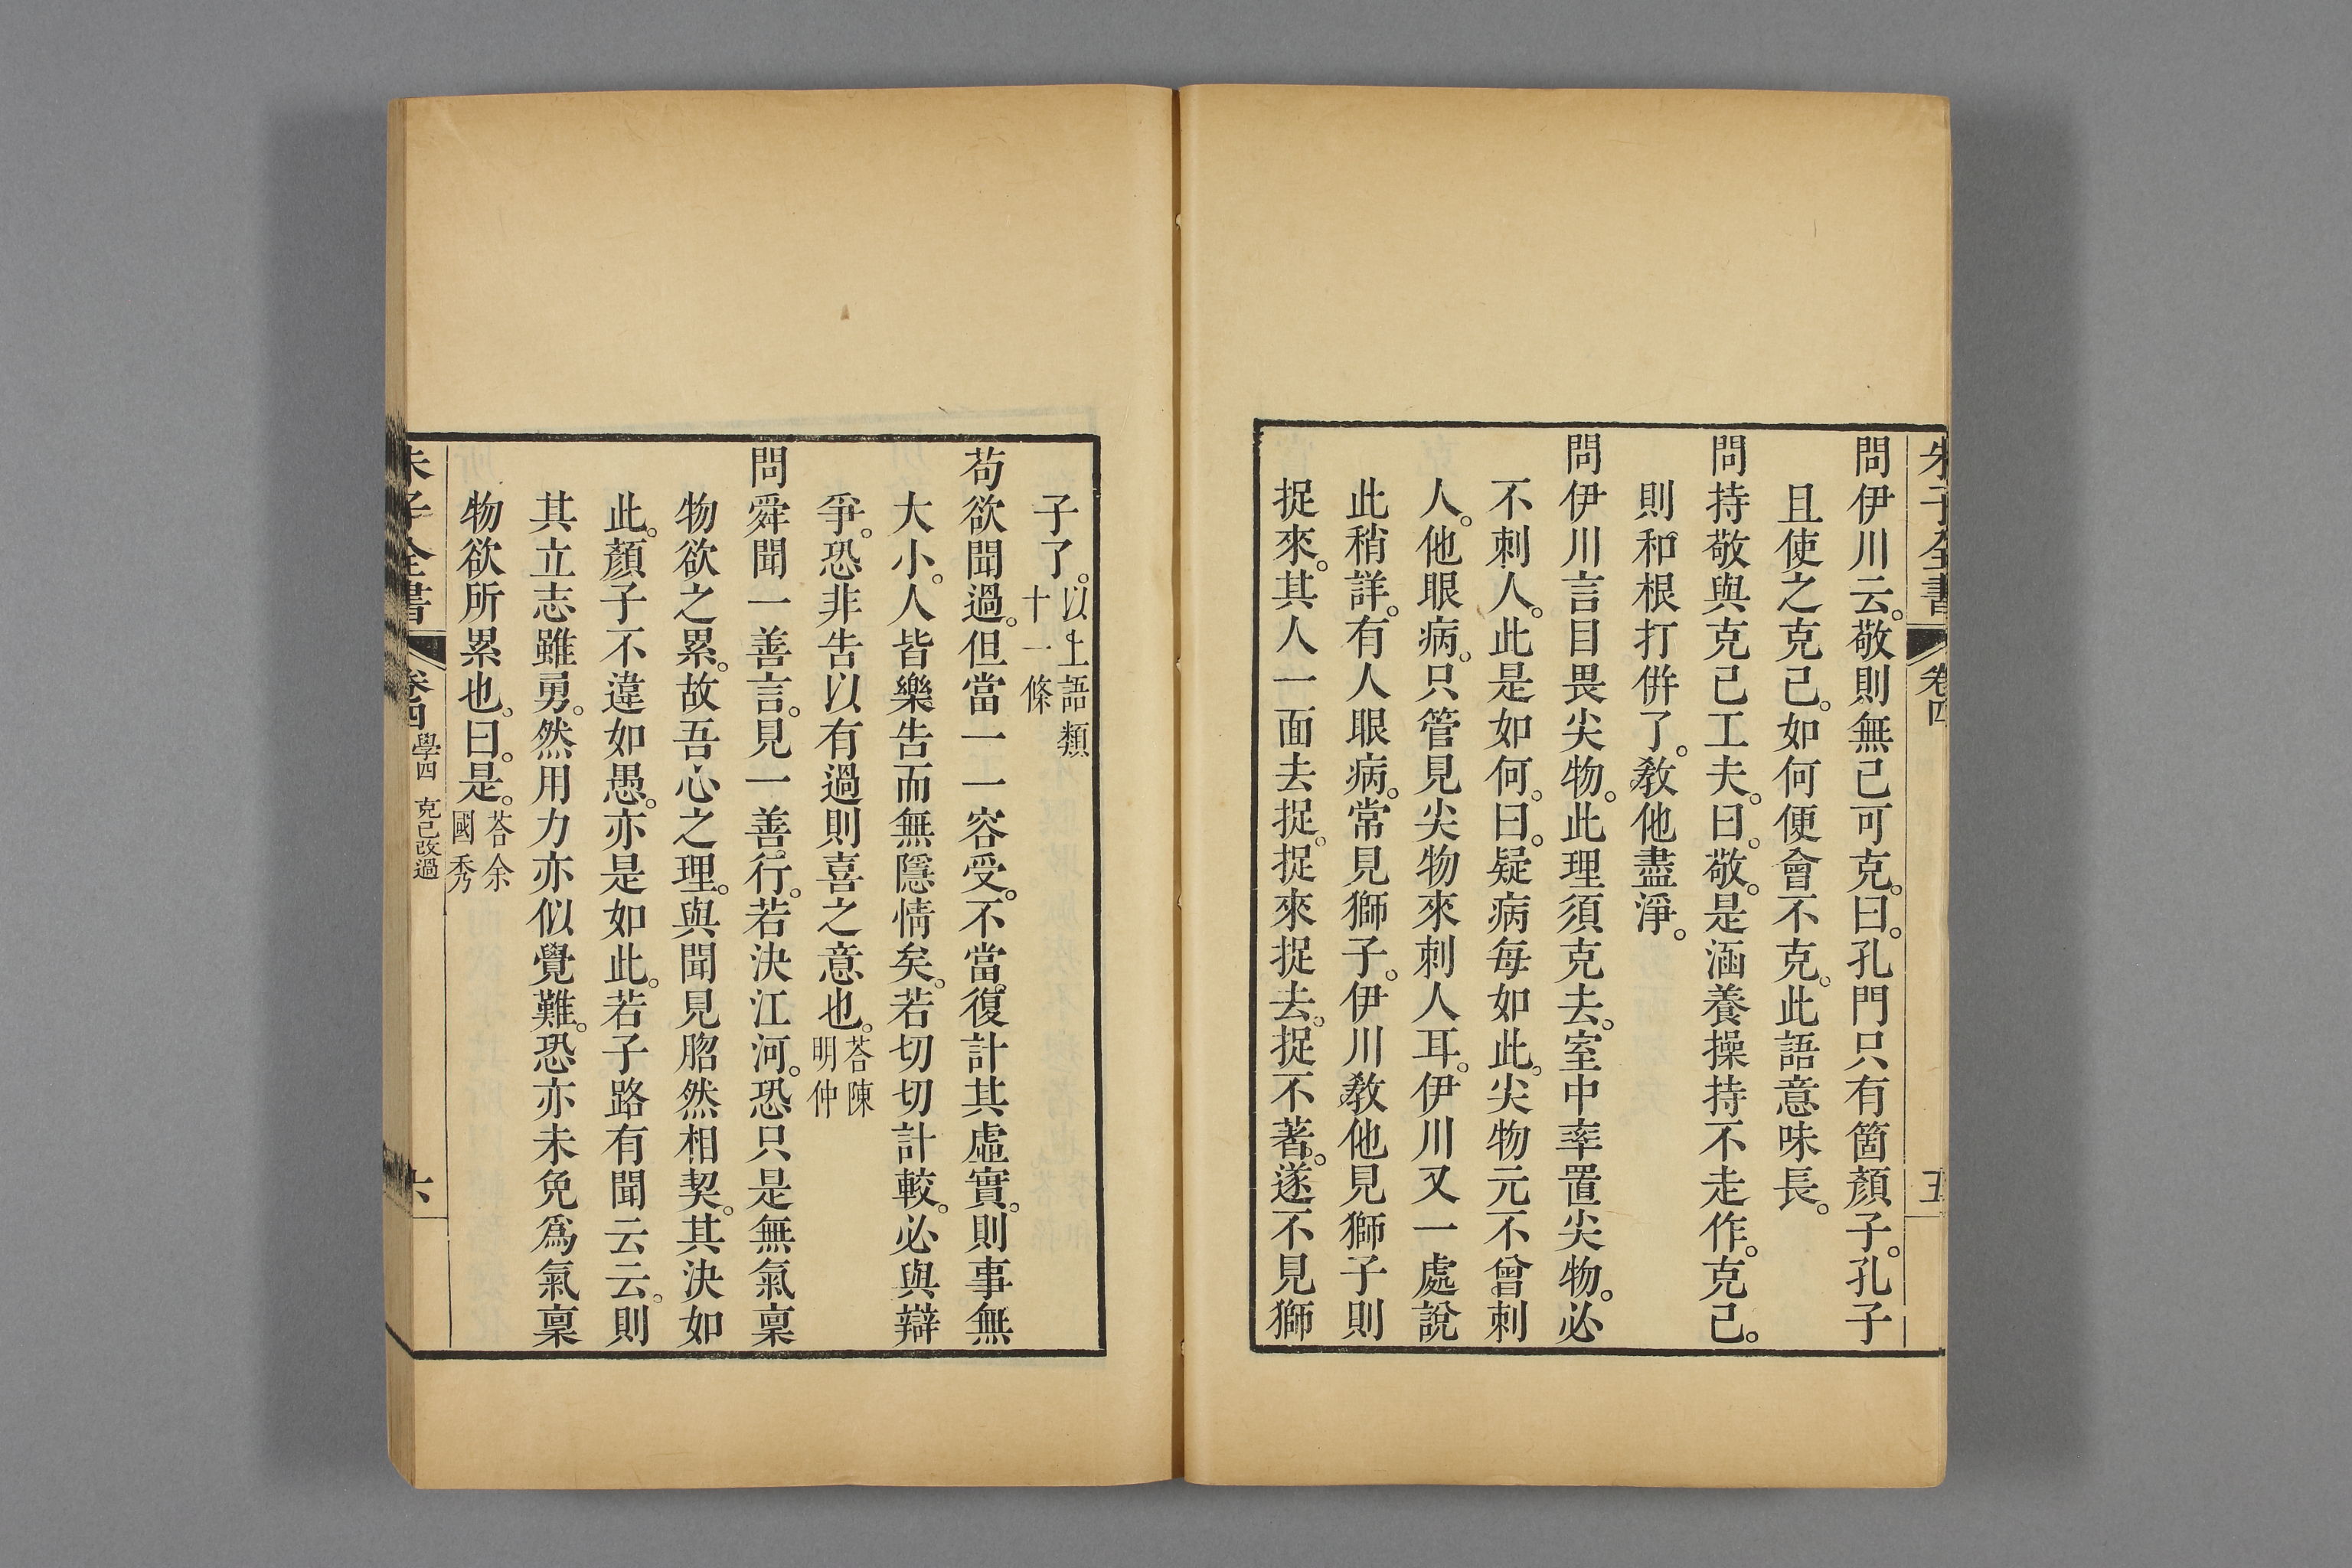 朱子全書 卷四 五
問伊川云。敬則無己可克。曰。孔門只有箇顏子。孔子
且使之克己。如何便會不克。此語意味長。
問持敬與克己工夫。曰。敬。是涵養操持不走作。克己。
則和根打倂了。敎他盡淨。
問伊川言目畏尖物。此理須克去。室中率置尖物。必
不刺人。此是如何。曰。疑病每如此。尖物元不曾刺
人。他眼病。只管見尖物來刺人耳。伊川又一處說
此稍詳。有人眼病。常見獅子。伊川敎他見獅子則
捉來。其人一面去捉。捉來捉去。捉不著。遂不見獅
子了。以上語類
十一條
苟欲聞過。但當一一容受。不當復計其虛實。則事無
大小。人皆樂告而無隱情矣。若切切計較。必與辯
爭。恐非告以有過則喜之意也。荅陳
明仲
問舜聞一善言。見一善行。若決江河。恐只是無氣稟
物欲之累。故吾心之理。與聞見脗然相契。其決如
此。顏子不違如愚。亦是如此。若子路有聞云云。則
其立志雖勇。然用力亦似覺難。恐亦未免爲氣稟
物欲所累也。曰。是。荅余
國秀
朱子全書 卷四 學四 克己改過 六